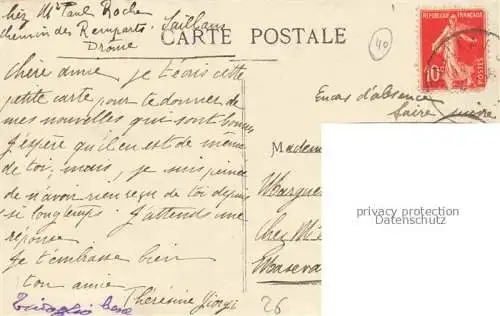 chez Mr Paul Roche
chemin des Remparts. Saillans
Drome
CARTE POSTALE
40
REPUBLIQUE FRANÇAISE
10c
POSTES
Chère amie je t'écris cette
petite carte pour te donner de
mes nouvelles qui sont bonnes
J'espère qu'il en est de même
de toi, mais, je suis peinée
de n'avoir rien reçu de toi depuis
si longtemps. J'attends une
réponse
Je t'embrasse bien
ton amie
Thérésine
En cas d'absence
faire suivre
Madem
Margue
Chez M
Maseva
privacy protection
Datenschutz
26